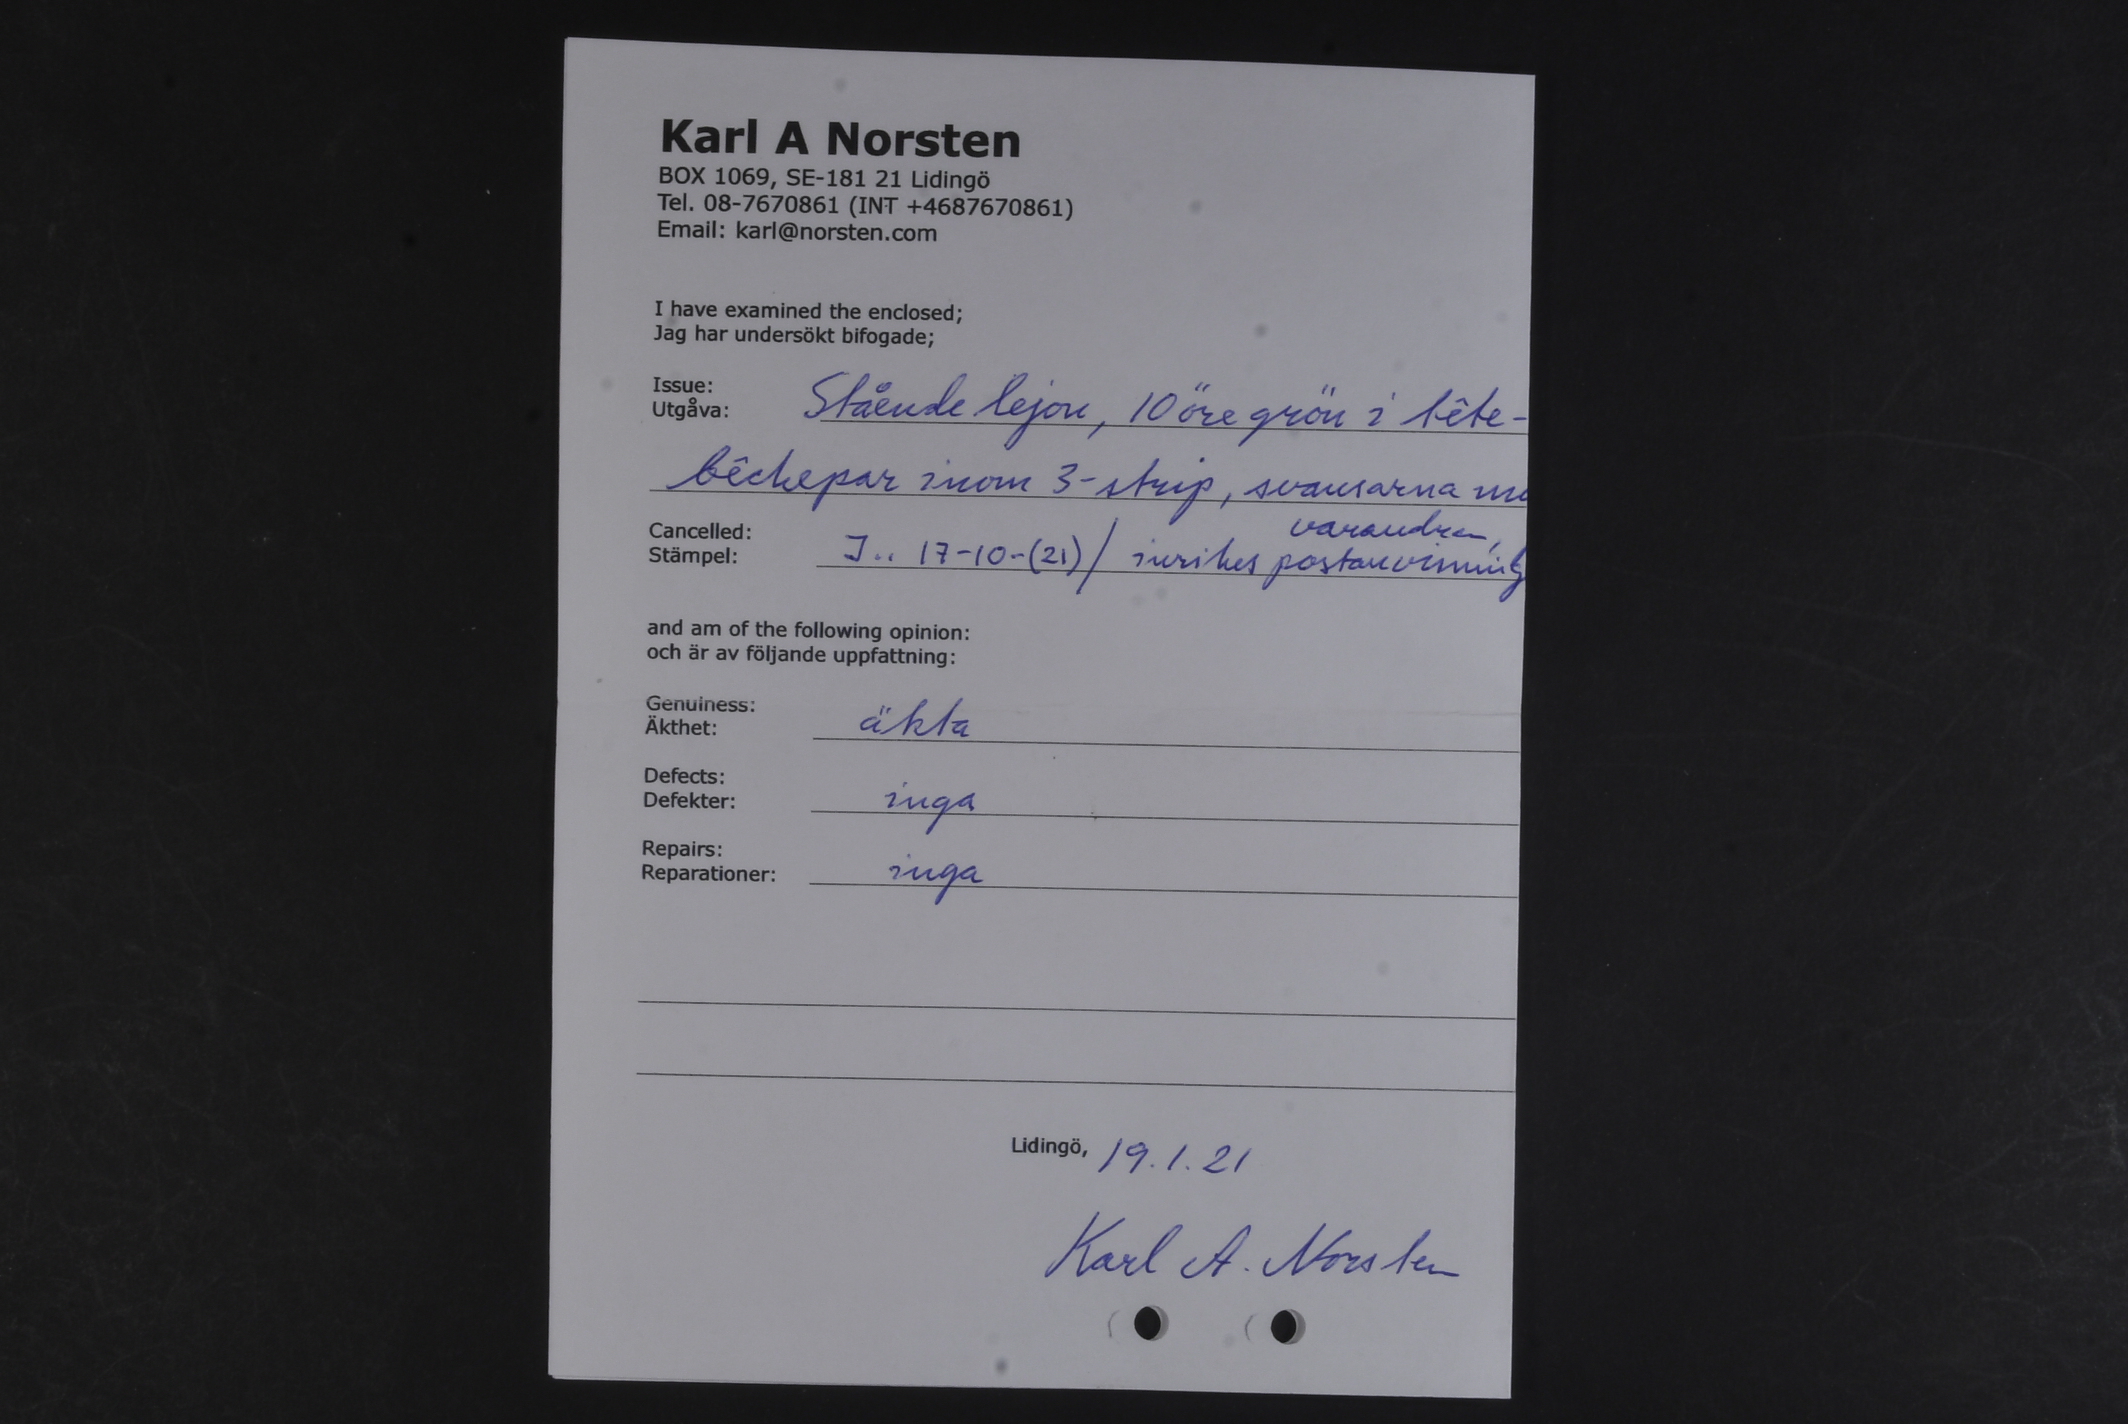 Karl A Norsten
BOX 1069, SE-181 21 Lidingö
Tel. 08-7670861 (INT +4687670861)
Email: karl@norsten.com
I have examined the enclosed;
Jag har undersökt bifogade;
Issue:
Utgåva: Stående lejon, 10 öre grön i tête-
bêchepar inom 3-strip, svansarna mo
varandra,
Cancelled:
Stämpel: J.. 17-10-(21) / inrikes postanvisning
and am of the following opinion:
och är av följande uppfattning:
Genuiness:
Äkthet: äkta
Defects:
Defekter: inga
Repairs:
Reparationer: inga
Lidingö, 19.1.21
Karl A. Norsten